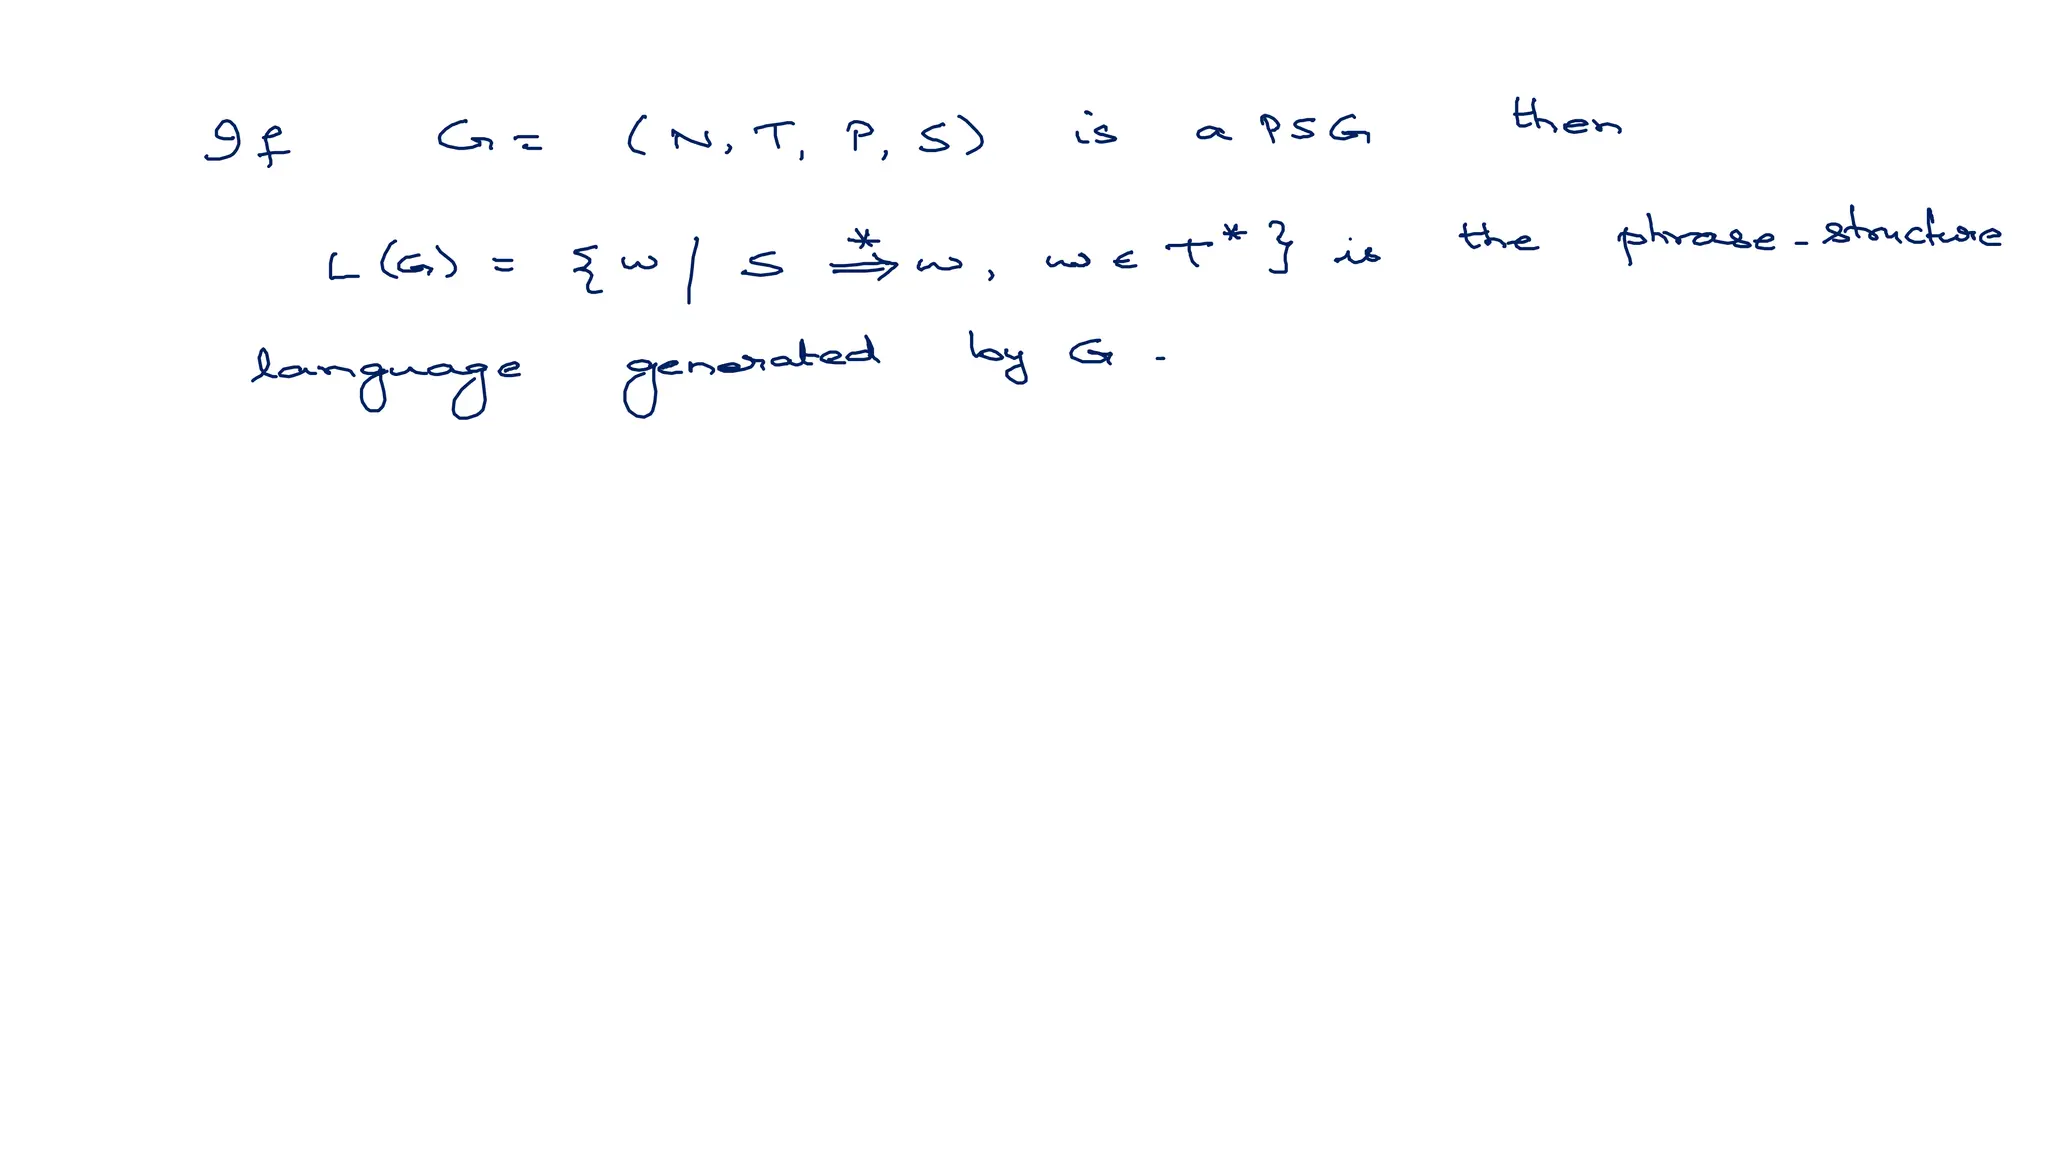 If G = (N, T, P, S) is a PSG then
L(G) = {w | S ⇒* w, w ∈ T*} is the phrase-structure
language generated by G.